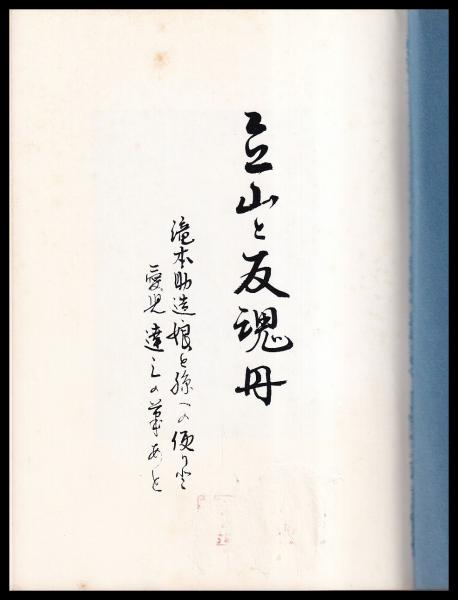 立山と反魂丹
滝本助造娘と孫への便りと
愛児達三の筆あと